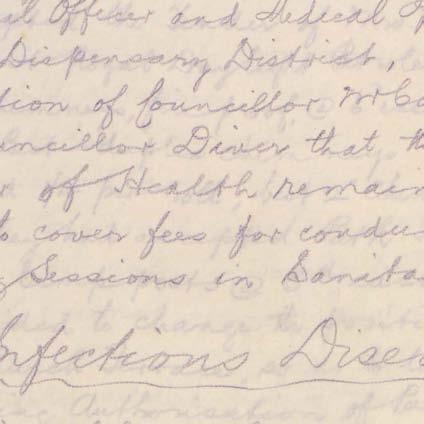 al Officer and Medical
Dispensary District,
tion of Councillor McCo
uncillor Diver that th
r of Health remain
to cover fees for condu
g Sessions in Sanita
Infectious Disea